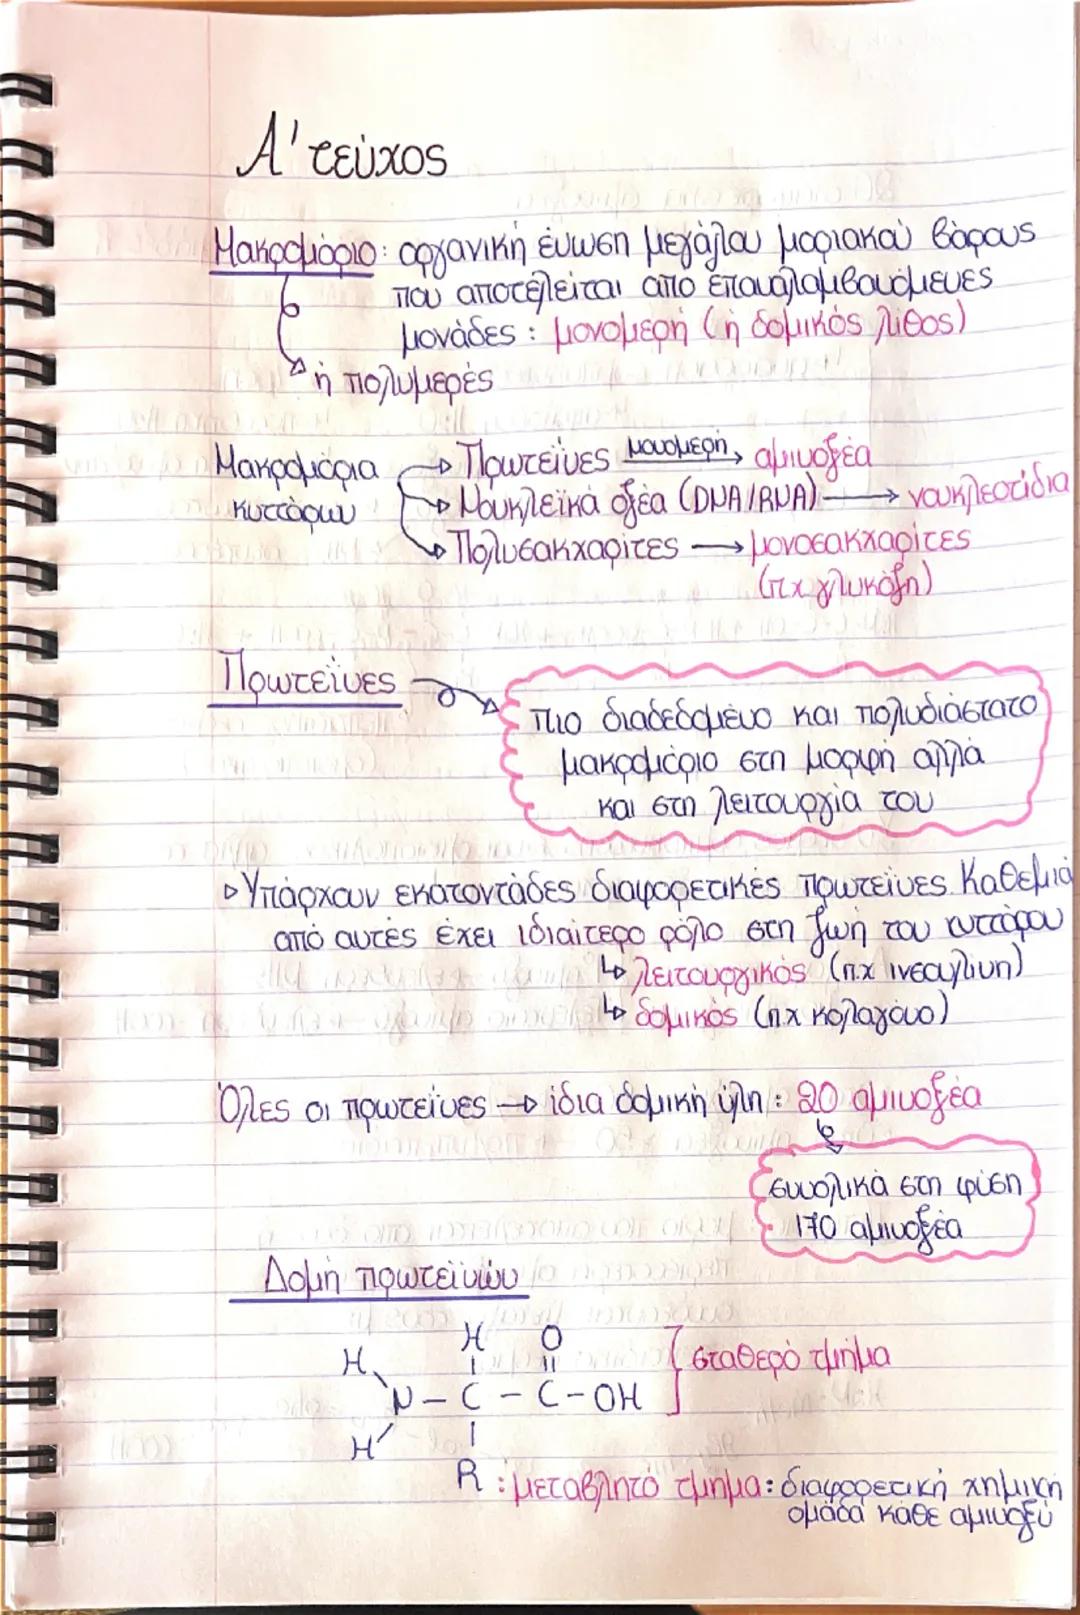 Α' τεύχος
Μακρομόριο: οργανική ένωση μεγάλου μοριακού βάρους
που αποτελείται από επαναλαμβανόμενες
μονάδες: μονομερή (ή δομικός λίθος)
ή πολυμερές
Μακρομόρια κυττάρων
Πρωτεΐνες μονομερή αμινοξέα
Νουκλεϊκά οξέα (DNA/RNA) → νουκλεοτίδια
Πολυσακχαρίτες → μονοσακχαρίτες
(πχ γλυκόζη)
Πρωτεΐνες
πιο διαδεδομένο και πολυδιάστατο
μακρομόριο στη μορφή αλλά
και στη λειτουργία του
Υπάρχουν εκατοντάδες διαφορετικές πρωτεΐνες. Καθεμιά
από αυτές έχει ιδιαίτερο ρόλο στη ζωή του κυττάρου
↳ λειτουργικός (π.χ ινσουλίνη)
↳ δομικός (π.χ κολαγόνο)
Όλες οι πρωτεΐνες → ίδια δομική ύλη: 20 αμινοξέα
συνολικά στη φύση
170 αμινοξέα
Δομή πρωτεϊνών
H O
H
σταθερό τμήμα
N - C - C - OH
H
R : μεταβλητό τμήμα: διαφορετική χημική
ομάδα κάθε αμινοξύ